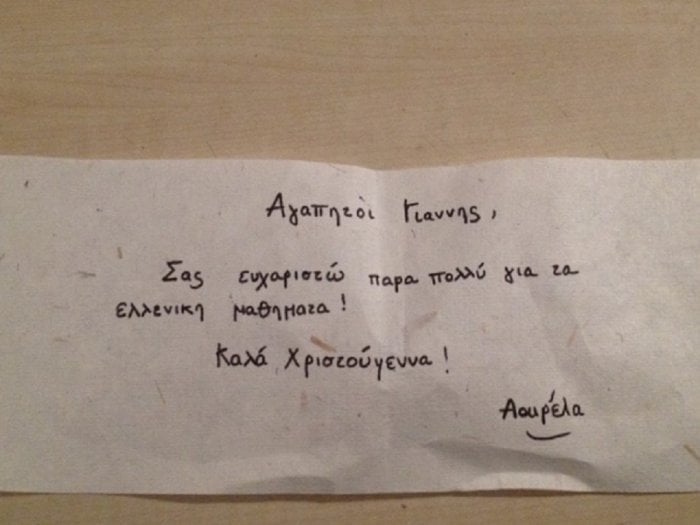 Αγαπητοι Γιαννης,
Σας ευχαριστώ παρα πολλύ για τα
ελλενικη μαθηματα!
Καλά Χριστούγεννα!
Αουρέλα